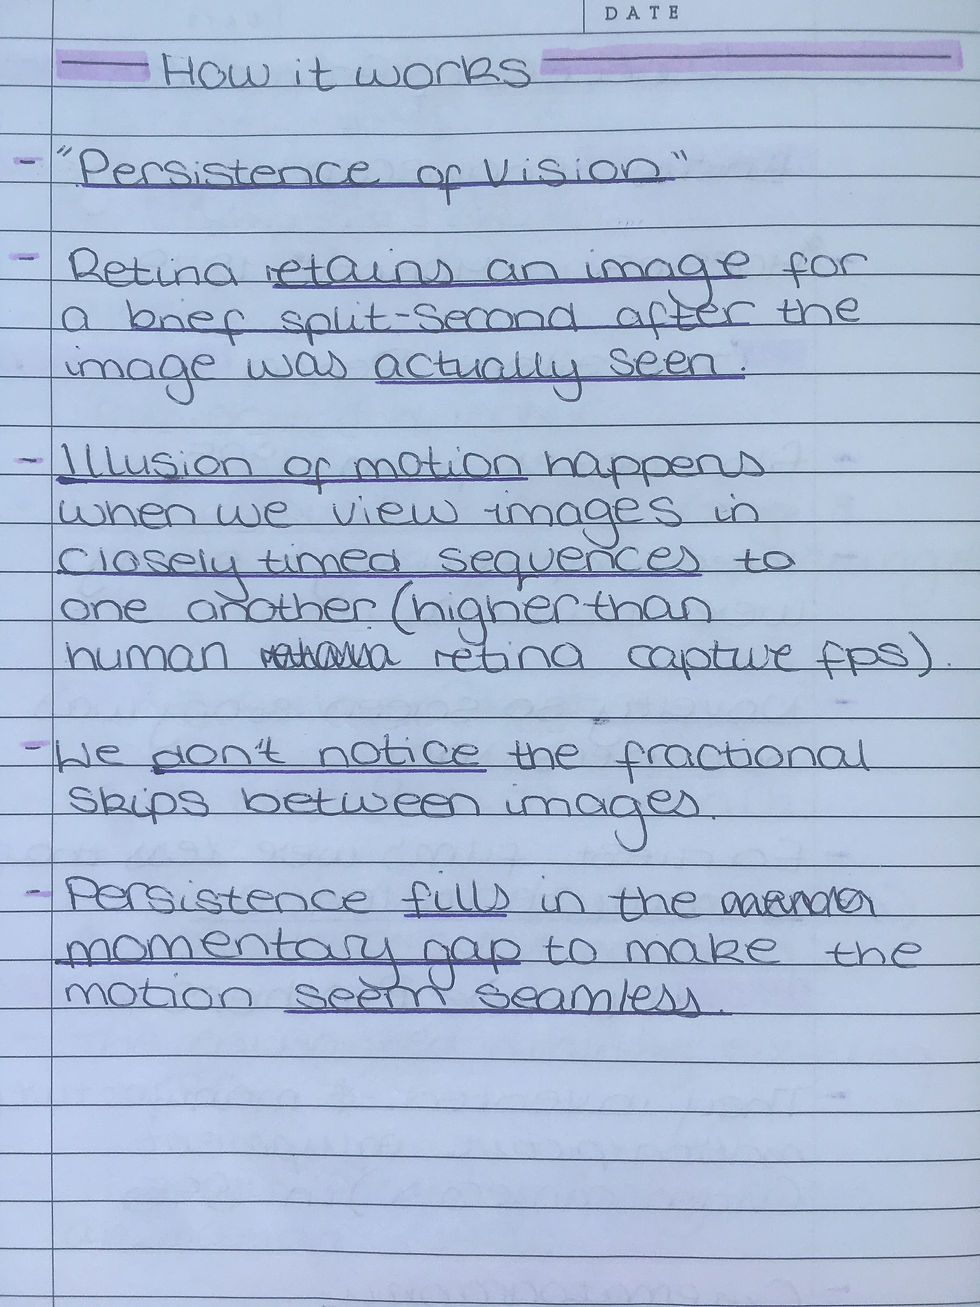 DATE
How it works
- "Persistence of Vision"
- Retina retains an image for
a brief split-second after the
image was actually seen.
- Illusion of motion happens
when we view images in
closely timed sequences to
one another. (higher than
human retina capture fps).
- We don't notice the fractional
skips between images.
- Persistence fills in the
momentary gap to make the
motion seem seamless.